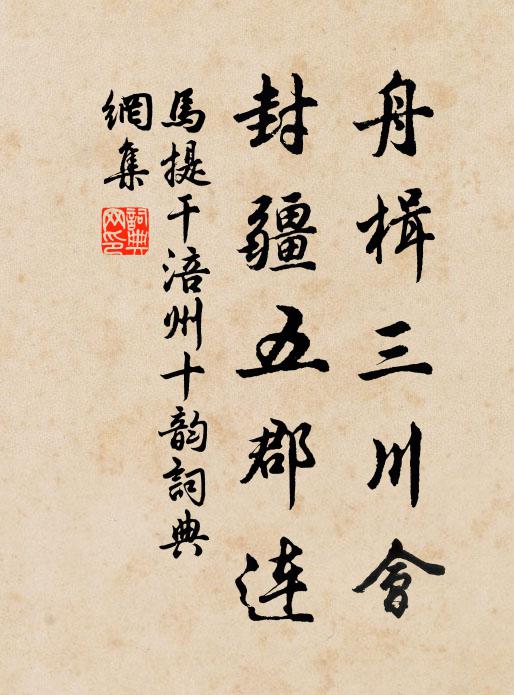 舟楫三川會
封疆五郡連
馬提干涪州十韵詞典
網集
詞典
网印